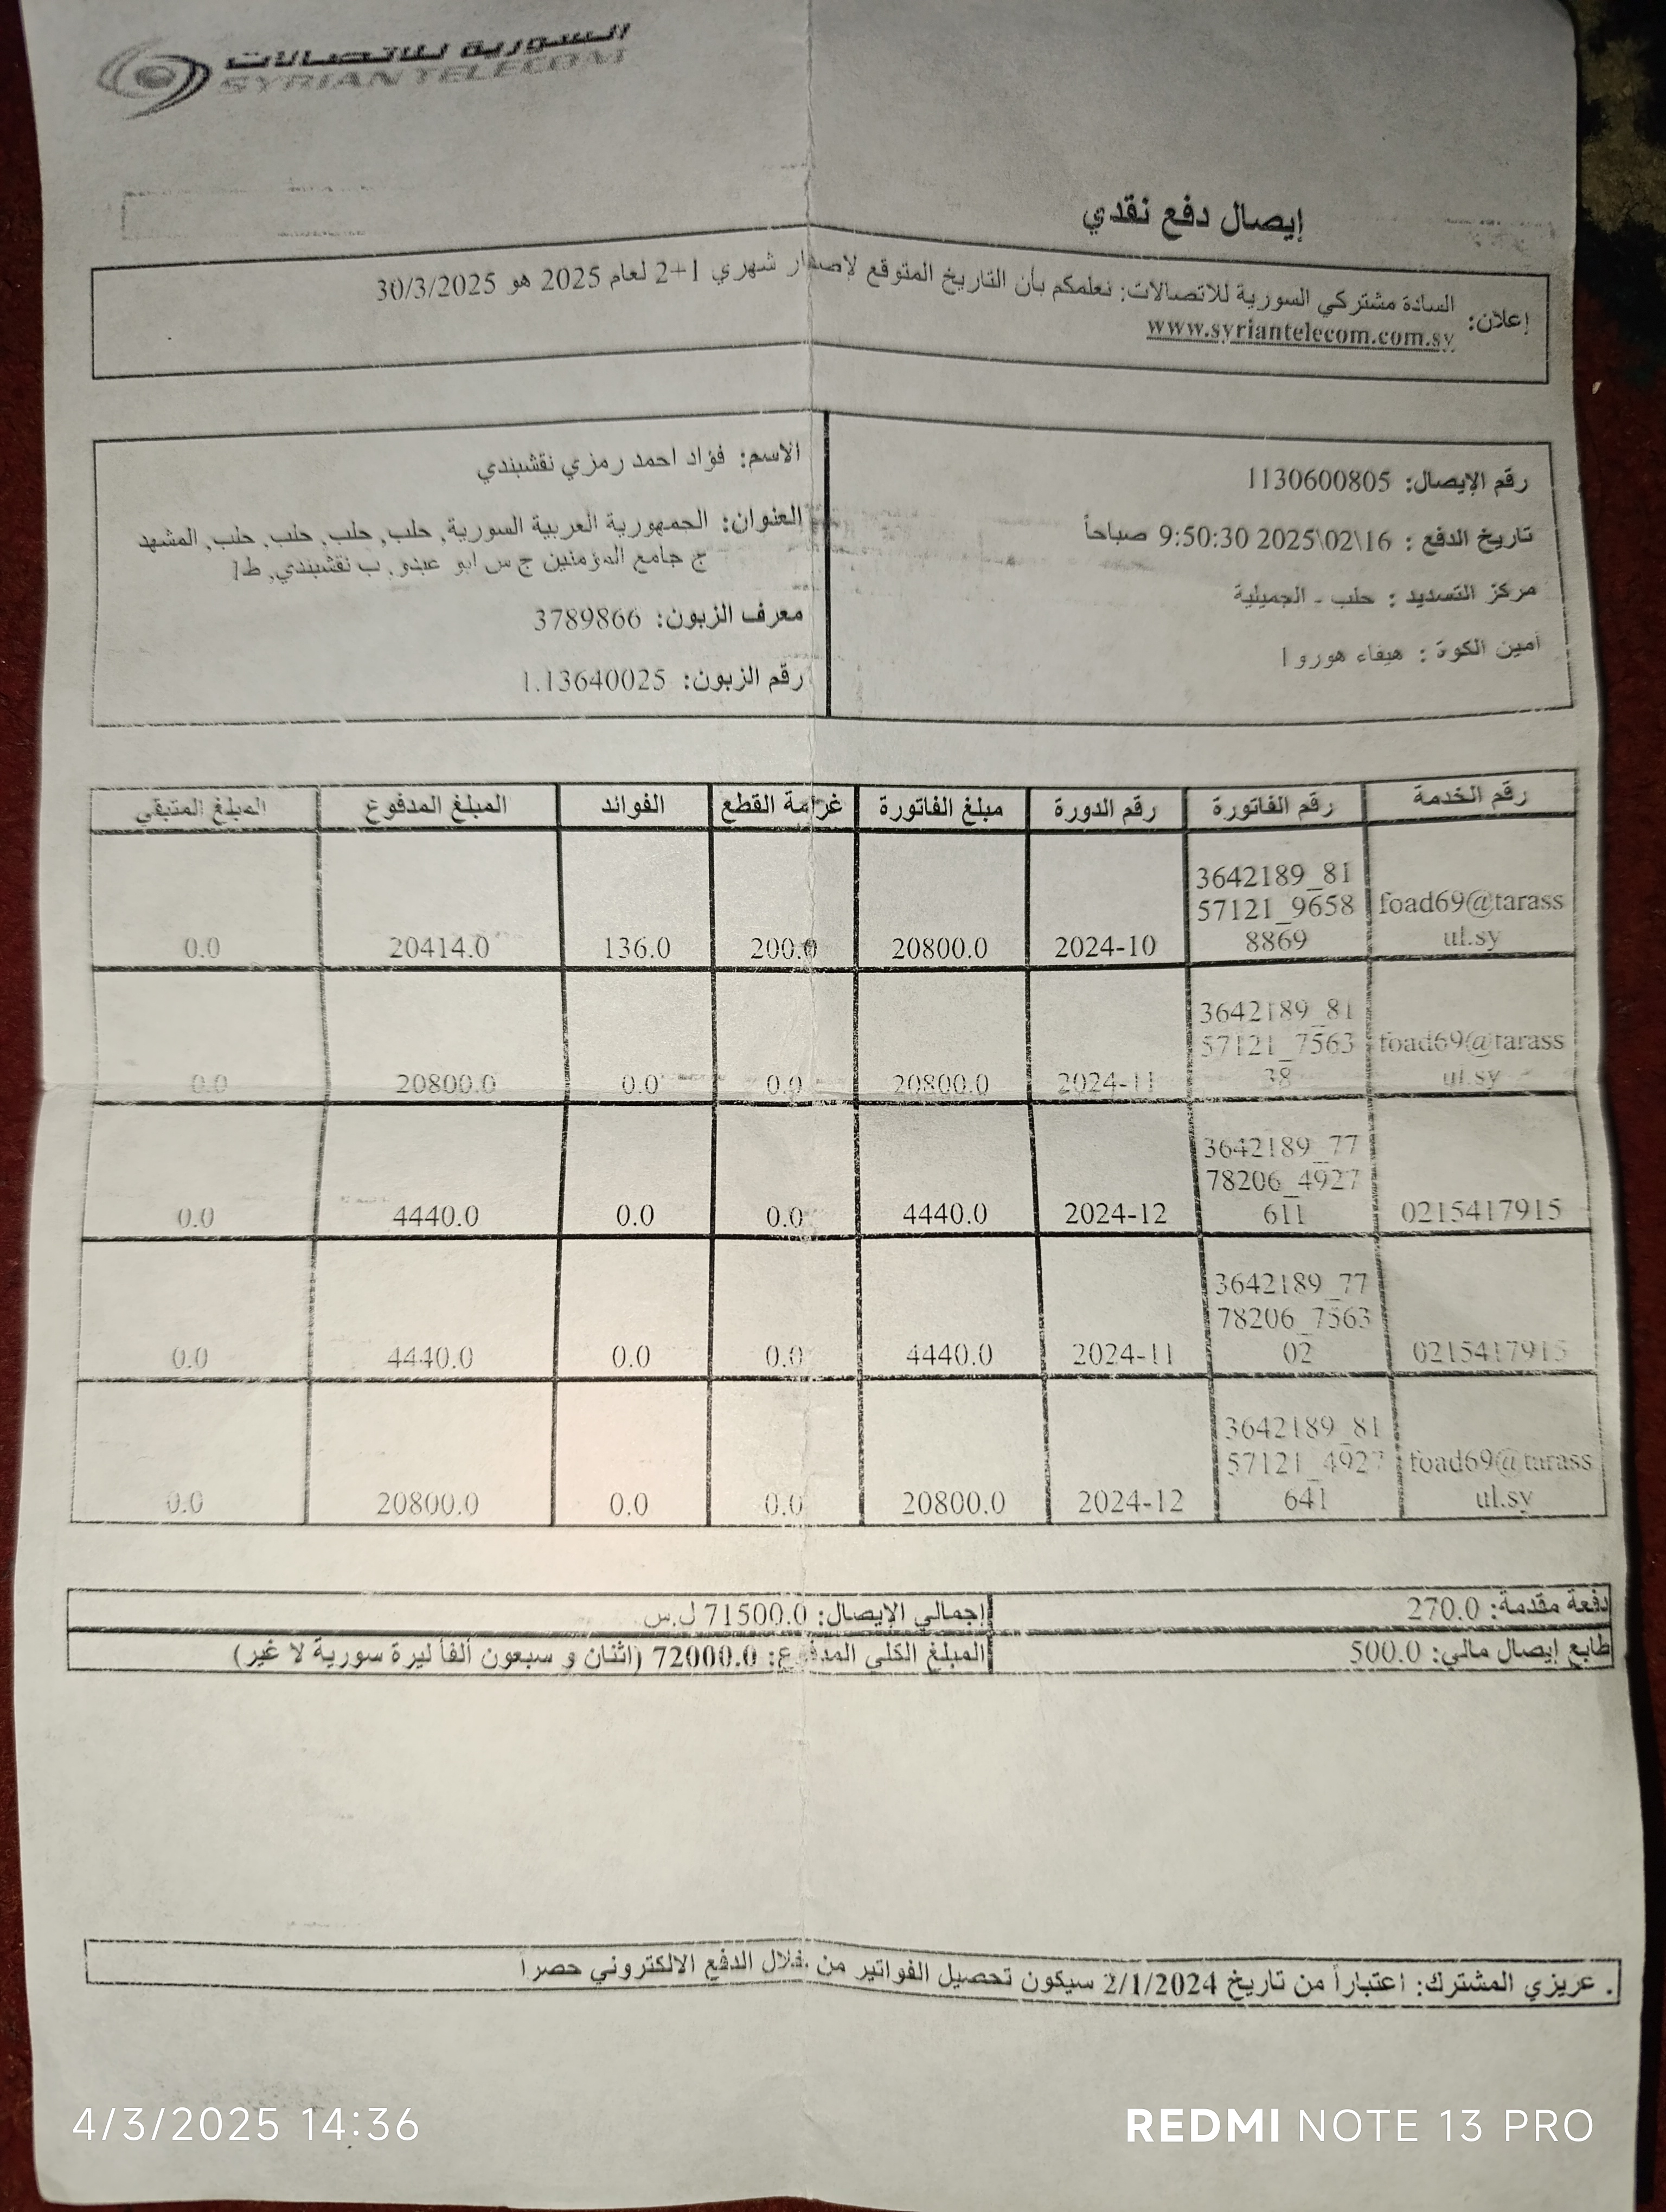 السورية للاتصالات
SYRIAN TELECOM
إيصال دفع نقدي
إعلان: السادة مشتركي السورية للاتصالات: نعلمكم بأن التاريخ المتوقع لإصدار شهري 1+2 لعام 2025 هو 30/3/2025
www.syriantelecom.com.sy
رقم الإيصال: 1130600805
تاريخ الدفع : 16\02\2025 9:50:30 صباحاً
مركز التسديد : حلب - الجميلية
أمين الكوة : هيفاء هورو 1
الاسم: فؤاد احمد رمزي نقشبندي
العنوان: الجمهورية العربية السورية, حلب, حلب, حلب, حلب, المشهد
ج جامع المؤمنين ج س ابو عبدو, ب نقشبندي, ط1
معرف الزبون: 3789866
رقم الزبون: 1.13640025
رقم الخدمة رقم الفاتورة رقم الدورة مبلغ الفاتورة غرامة القطع الفوائد المبلغ المدفوع المبلغ المتبقي
3642189_81
foad69@tarass 57121_9658
ul.sy 8869 2024-10 20800.0 200.0 136.0 20414.0 0.0
3642189_81
foad69@tarass 57121_7563
ul.sy 38 2024-11 20800.0 0.0 0.0 20800.0 0.0
3642189_77
78206_4927
0215417915 611 2024-12 4440.0 0.0 0.0 4440.0 0.0
3642189_77
78206_7563
0215417915 02 2024-11 4440.0 0.0 0.0 4440.0 0.0
3642189_81
foad69@tarass 57121_4927
ul.sy 641 2024-12 20800.0 0.0 0.0 20800.0 0.0
دفعة مقدمة: 270.0 إجمالي الإيصال: 71500.0 ل.س
طابع إيصال مالي: 500.0 المبلغ الكلي المدفوع: 72000.0 (اثنان و سبعون ألفا ليرة سورية لا غير)
. عزيزي المشترك: اعتباراً من تاريخ 2/1/2024 سيكون تحصيل الفواتير من خلال الدفع الالكتروني حصرا
4/3/2025 14:36
REDMI NOTE 13 PRO